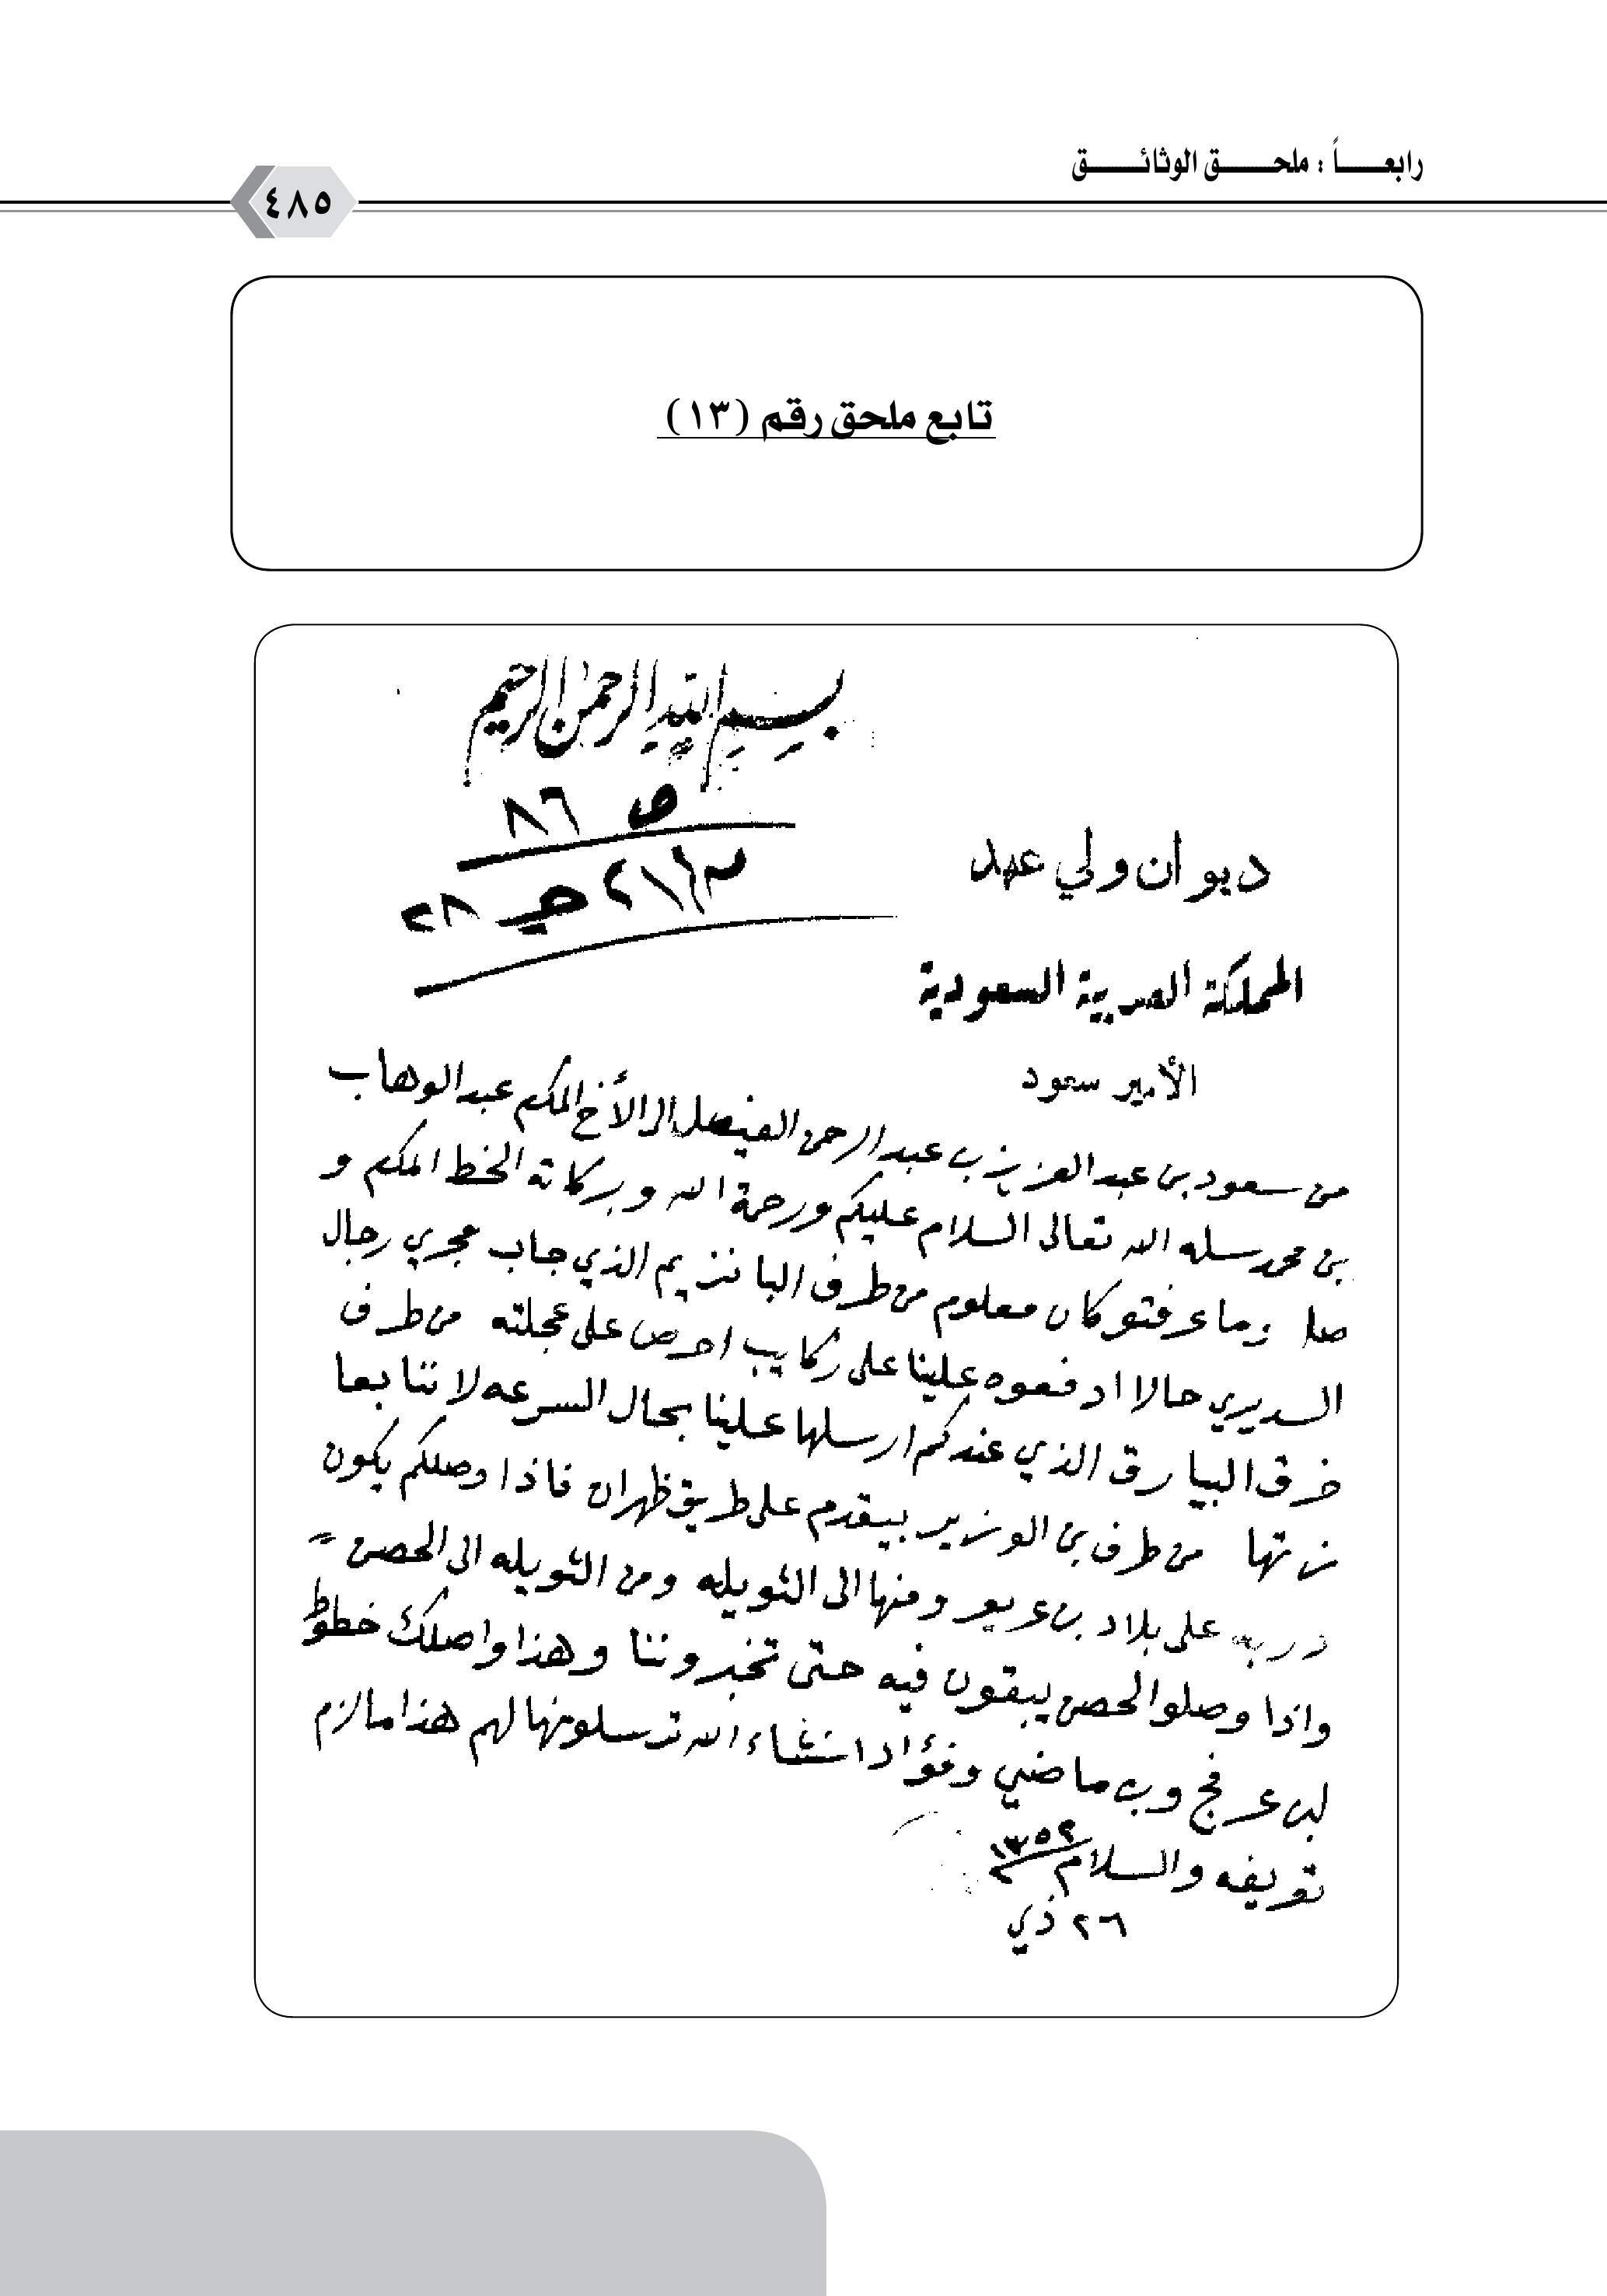 رابعـــاً : ملحـــق الوثائـــق
٤٨٥
تابع ملحق رقم (١٣)
بسم الله الرحمن الرحيم
ص ٨٦
ديوان ولي عهد
المملكة العربية السعودية
الأمير سعود
من سعود بن عبد العزيز ب عبد الرحمن الفيصل الى الأخ المكرم عبد الوهاب
بن محمد سلمه الله تعالى السلام عليكم ورحمة الله وبركاته الخط المكرم و
صل وما عرفتو كان معلوم من طرف البا نزيم الذي جاب مجري رجال
السديري حالا ادفعوه علينا على ركايب احرص على عجلته من طرف
خرق البيارق الذي عندكم ارسلها علينا بحال السرعه لا نتا بعا
زتها من طرف بن الوزير بيقدم على طريق ظهران فاذا وصلكم يكون
دربه على بلاد بن عريعر ومنها الى الثويله ومن الثويله الى الحصن
واذا وصلو الحصن يبقون فيه حتى تخبروننا وهذا واصلك خطوط
لبن عرفج وب ماضي وفؤاد انشاء الله ترسلونها لهم هذا مالزم
تعريفه والسلام ١٣٥٢
٢٦ ذي